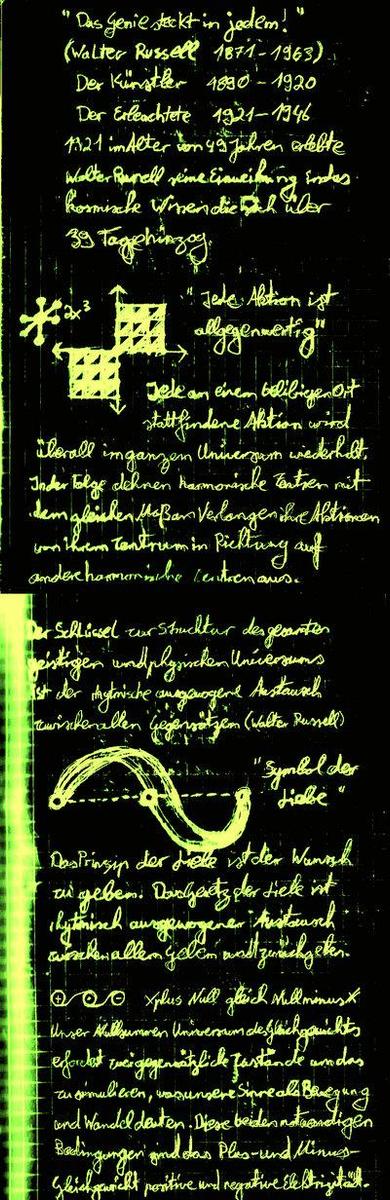 "Das Genie steckt in jedem!"
(Walter Russell 1871-1963)
Der Künstler 1890-1920
Der Erleuchtete 1921-1946
1921 im Alter von 49 Jahren erlebte
Walter Russell seine Einweihung in das
kosmische Wissen die sich über
39 Tage hinzog.
2x³
"Jede Aktion ist
allgegenwertig"
Jede an einem beliebigen Ort
stattfindene Aktion wird
überall im ganzen Universum wiederholt.
In der Folge dehnen harmonische Zentren mit
dem gleichen Maß an Verlangen ihre Aktionen
von ihrem Zentrum in Richtung auf
andere harmonische Zentren aus.
Der Schlüssel zur Struktur des gesamten
geistigen und physischen Universums
ist der rhytmische ausgewogene Austausch
zwischen allen Gegensätzen (Walter Russell)
"Symbol der
Liebe"
Das Prinzip der Liebe ist der Wunsch
zu geben. Das Gesetz der Liebe ist
rhytmisch ausgewogener Austausch
zwischen allem Geben und
+ 0 - X plus Null gleich Null minus X
Unser Nullsummen Universum des Gleichgewichts
erfordert zwei gegensätzliche Zustände um das
zu simulieren, was unsere Sinne als Bewegung
und Wandel deuten. Diese beiden notwendigen
Bedingungen sind das Plus- und Minus-
Gleichgewicht positive und negative